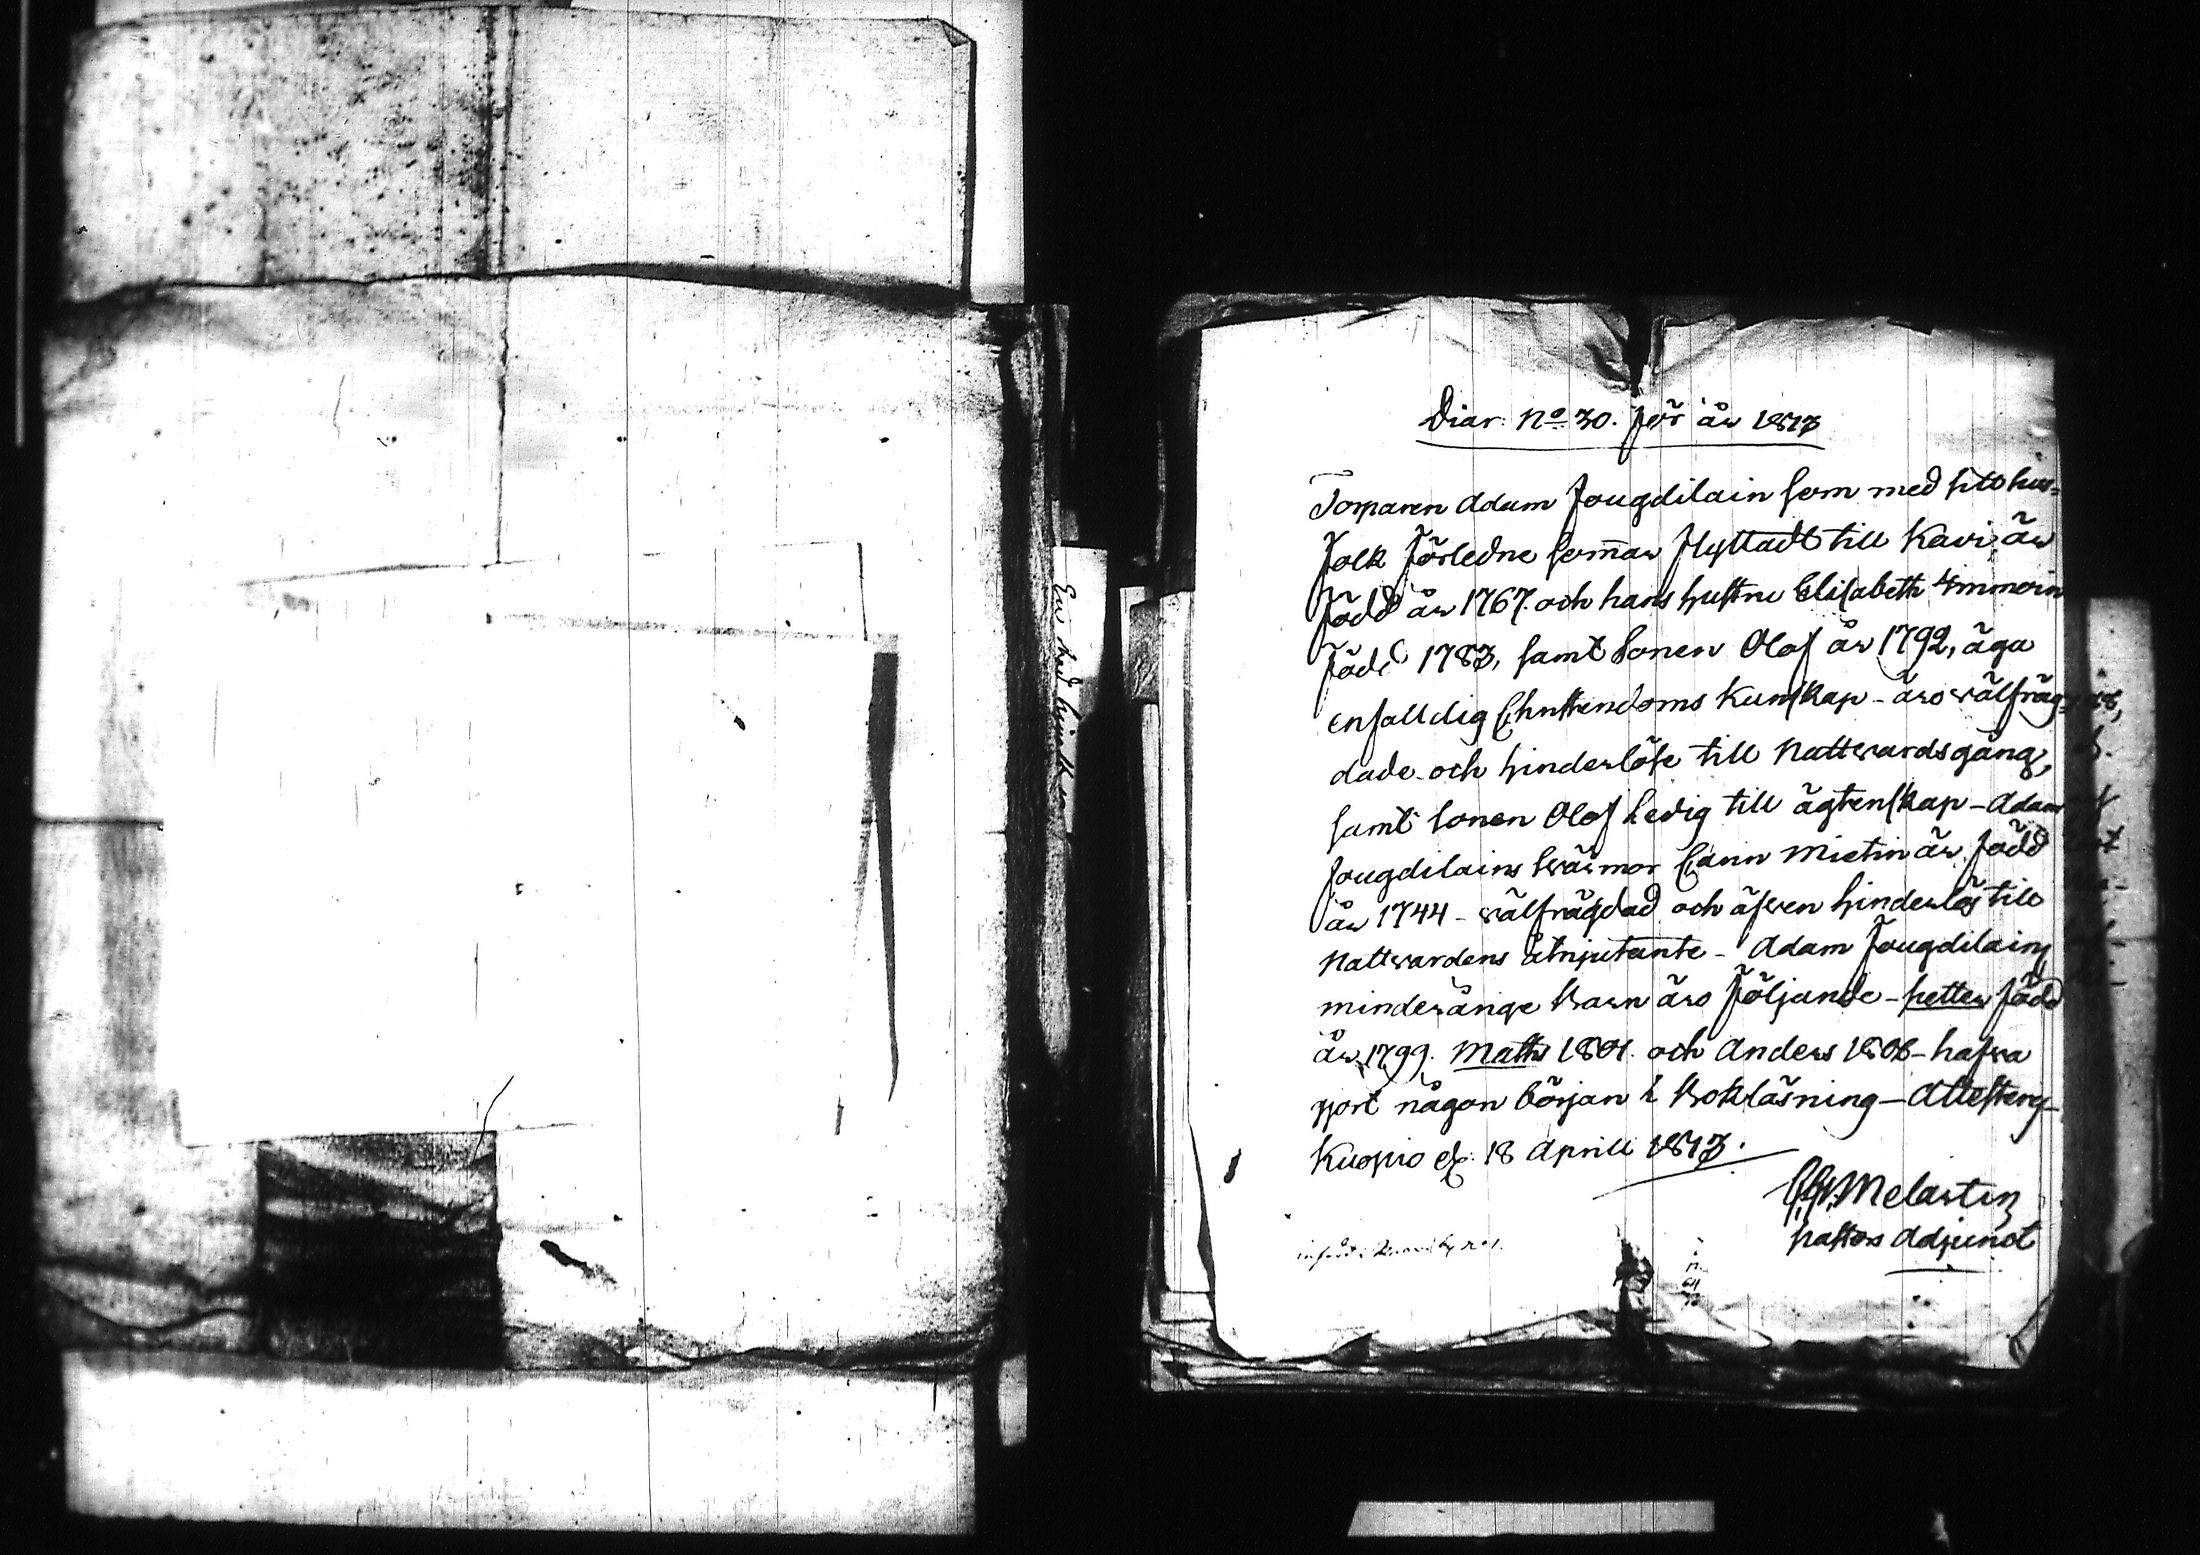 Diar. No 30. för år 1813
Torparen Adam Jougdilain som med sitt hus-
folk förledne sommar flyttadt till Kavi, är
född år 1767. och hans hustru Elisabeth Immoin
född 1783, samt sonen Olof år 1792, äga
enfalldig Christendoms kunskap - äro välfräg-
dade och hinderlöse till Nattvardsgång,
samt sonen Olof Ledig till ägtenskap - Adam
Jougdilains Svärmor Carin Mietin är född
år 1744 - välfrägdad och äfven hinderlös till
Nattvardens åtnjutante - Adam Jougdilains
minderårige Barn äro följande - Petter född
år 1799. Maths 1801. och Anders 1808 - hafva
gjort någon början i Bokläsning - Attesterg
Kuopio d. 18 Aprill 1813.
Melartin
Pastors Adjunct